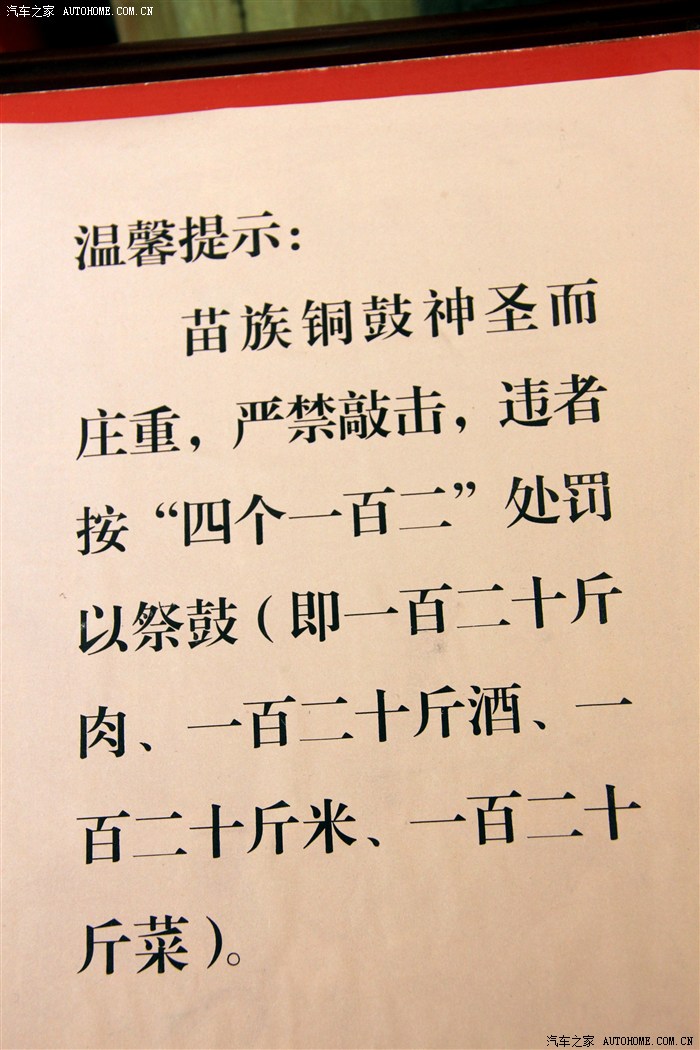 汽车之家 AUTOHOME.COM.CN
温馨提示：
苗族铜鼓神圣而
庄重，严禁敲击，违者
按“四个一百二”处罚
以祭鼓（即一百二十斤
肉、一百二十斤酒、一
百二十斤米、一百二十
斤菜）。
汽车之家 AUTOHOME.COM.CN